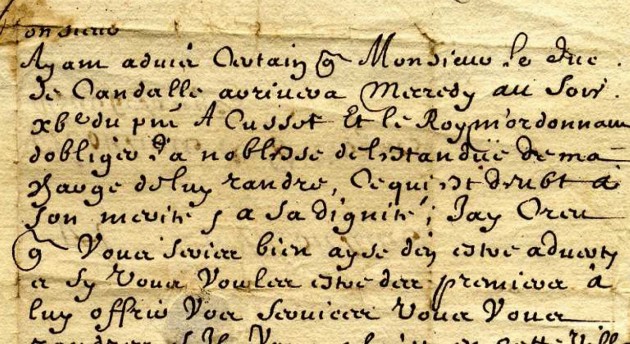 onsieur
Ayant advis Certain q Monsieur le duc
de Candalle arrivera Mecredy au Soir
xbe du pnt A Cusset Et le Roy m'ordonnant
dobliger la noblesse de lestandue de ma
charge de luy randre, Ce qui est deubt a
son merite, & a sa dignité; Jay Creu
q Vous seriez bien ayse den estre adverty
et sy Vous Voulez estre des premiers à
luy offrir Vos services Vous Vous